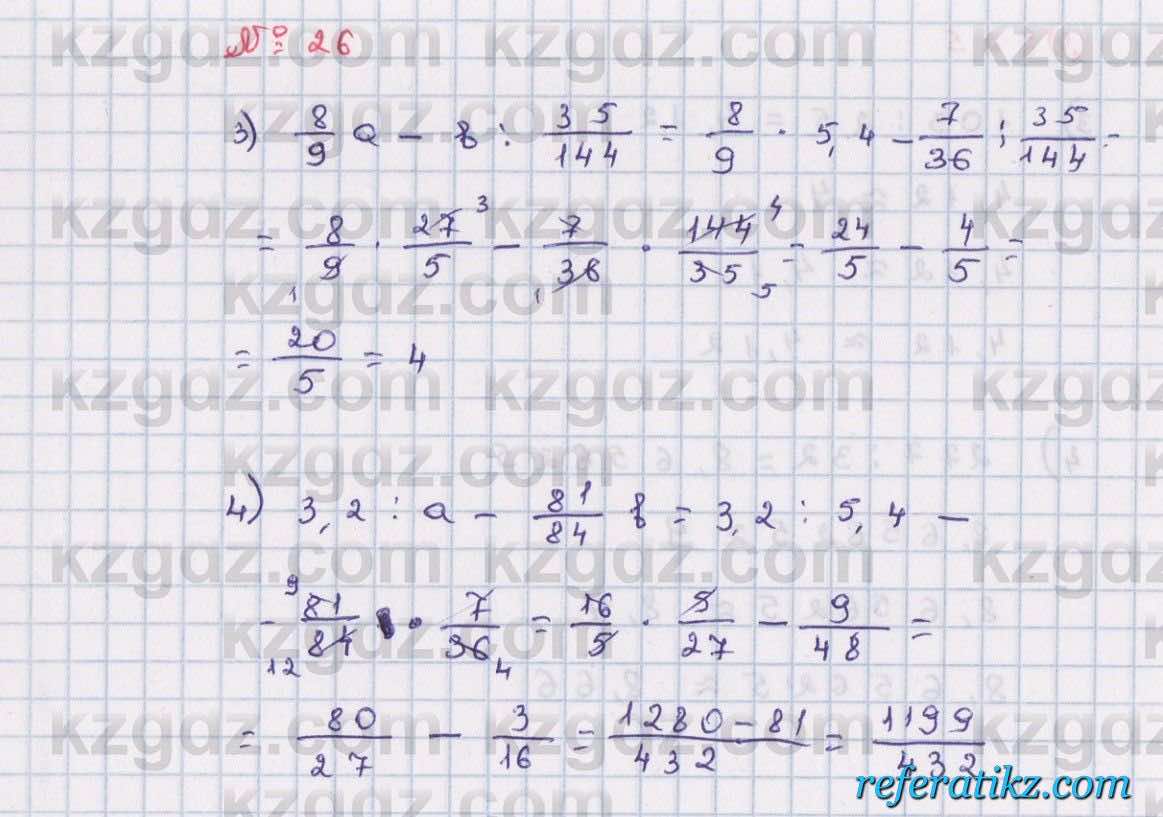 № 26
3) 8/9 a - b : 35/144 = 8/9 · 5,4 - 7/36 : 35/144 =
= 8/9 1 · 27/5 3 - 7/36 1 · 144/35 4 5 = 24/5 - 4/5 =
= 20/5 = 4
4) 3,2 : a - 81/84 b = 3,2 : 5,4 -
- 9 81/84 12 · 7/36 4 = 16/5 · 5/27 - 9/48 =
= 80/27 - 3/16 = 1280-81/432 = 1199/432
referatikz.com
kzgdz.com